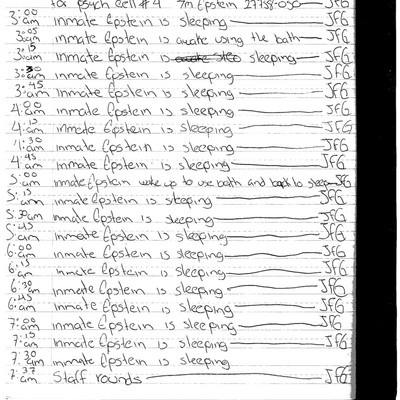 for psych cell #4 7m Epstein JFG
3:00 am inmate Epstein is sleeping JFG
3:05 am inmate Epstein is awake using the bath JFG
3:15 am inmate Epstein is awake sleeping JFG
3:30 am inmate Epstein is sleeping JFG
3:45 am inmate Epstein is sleeping JFG
4:00 am inmate Epstein is sleeping JFG
4:15 am inmate Epstein is sleeping JFG
4:30 am inmate Epstein is sleeping JFG
4:45 am inmate Epstein is sleeping JFG
5:00 am inmate Epstein woke up to use bath and back to sleep JFG
5:15 am inmate Epstein is sleeping JFG
5:30 am inmate Epstein is sleeping JFG
5:45 inmate Epstein is sleeping JFG
6:00 am inmate Epstein is sleeping JFG
6:15 am inmate Epstein is sleeping JFG
6:30 am inmate Epstein is sleeping JFG
6:45 am inmate Epstein is sleeping JFG
7:00 am inmate Epstein is sleeping JFG
7:15 am inmate Epstein is sleeping JFG
7:30 am inmate Epstein is sleeping
7:37 am Staff rounds JFG